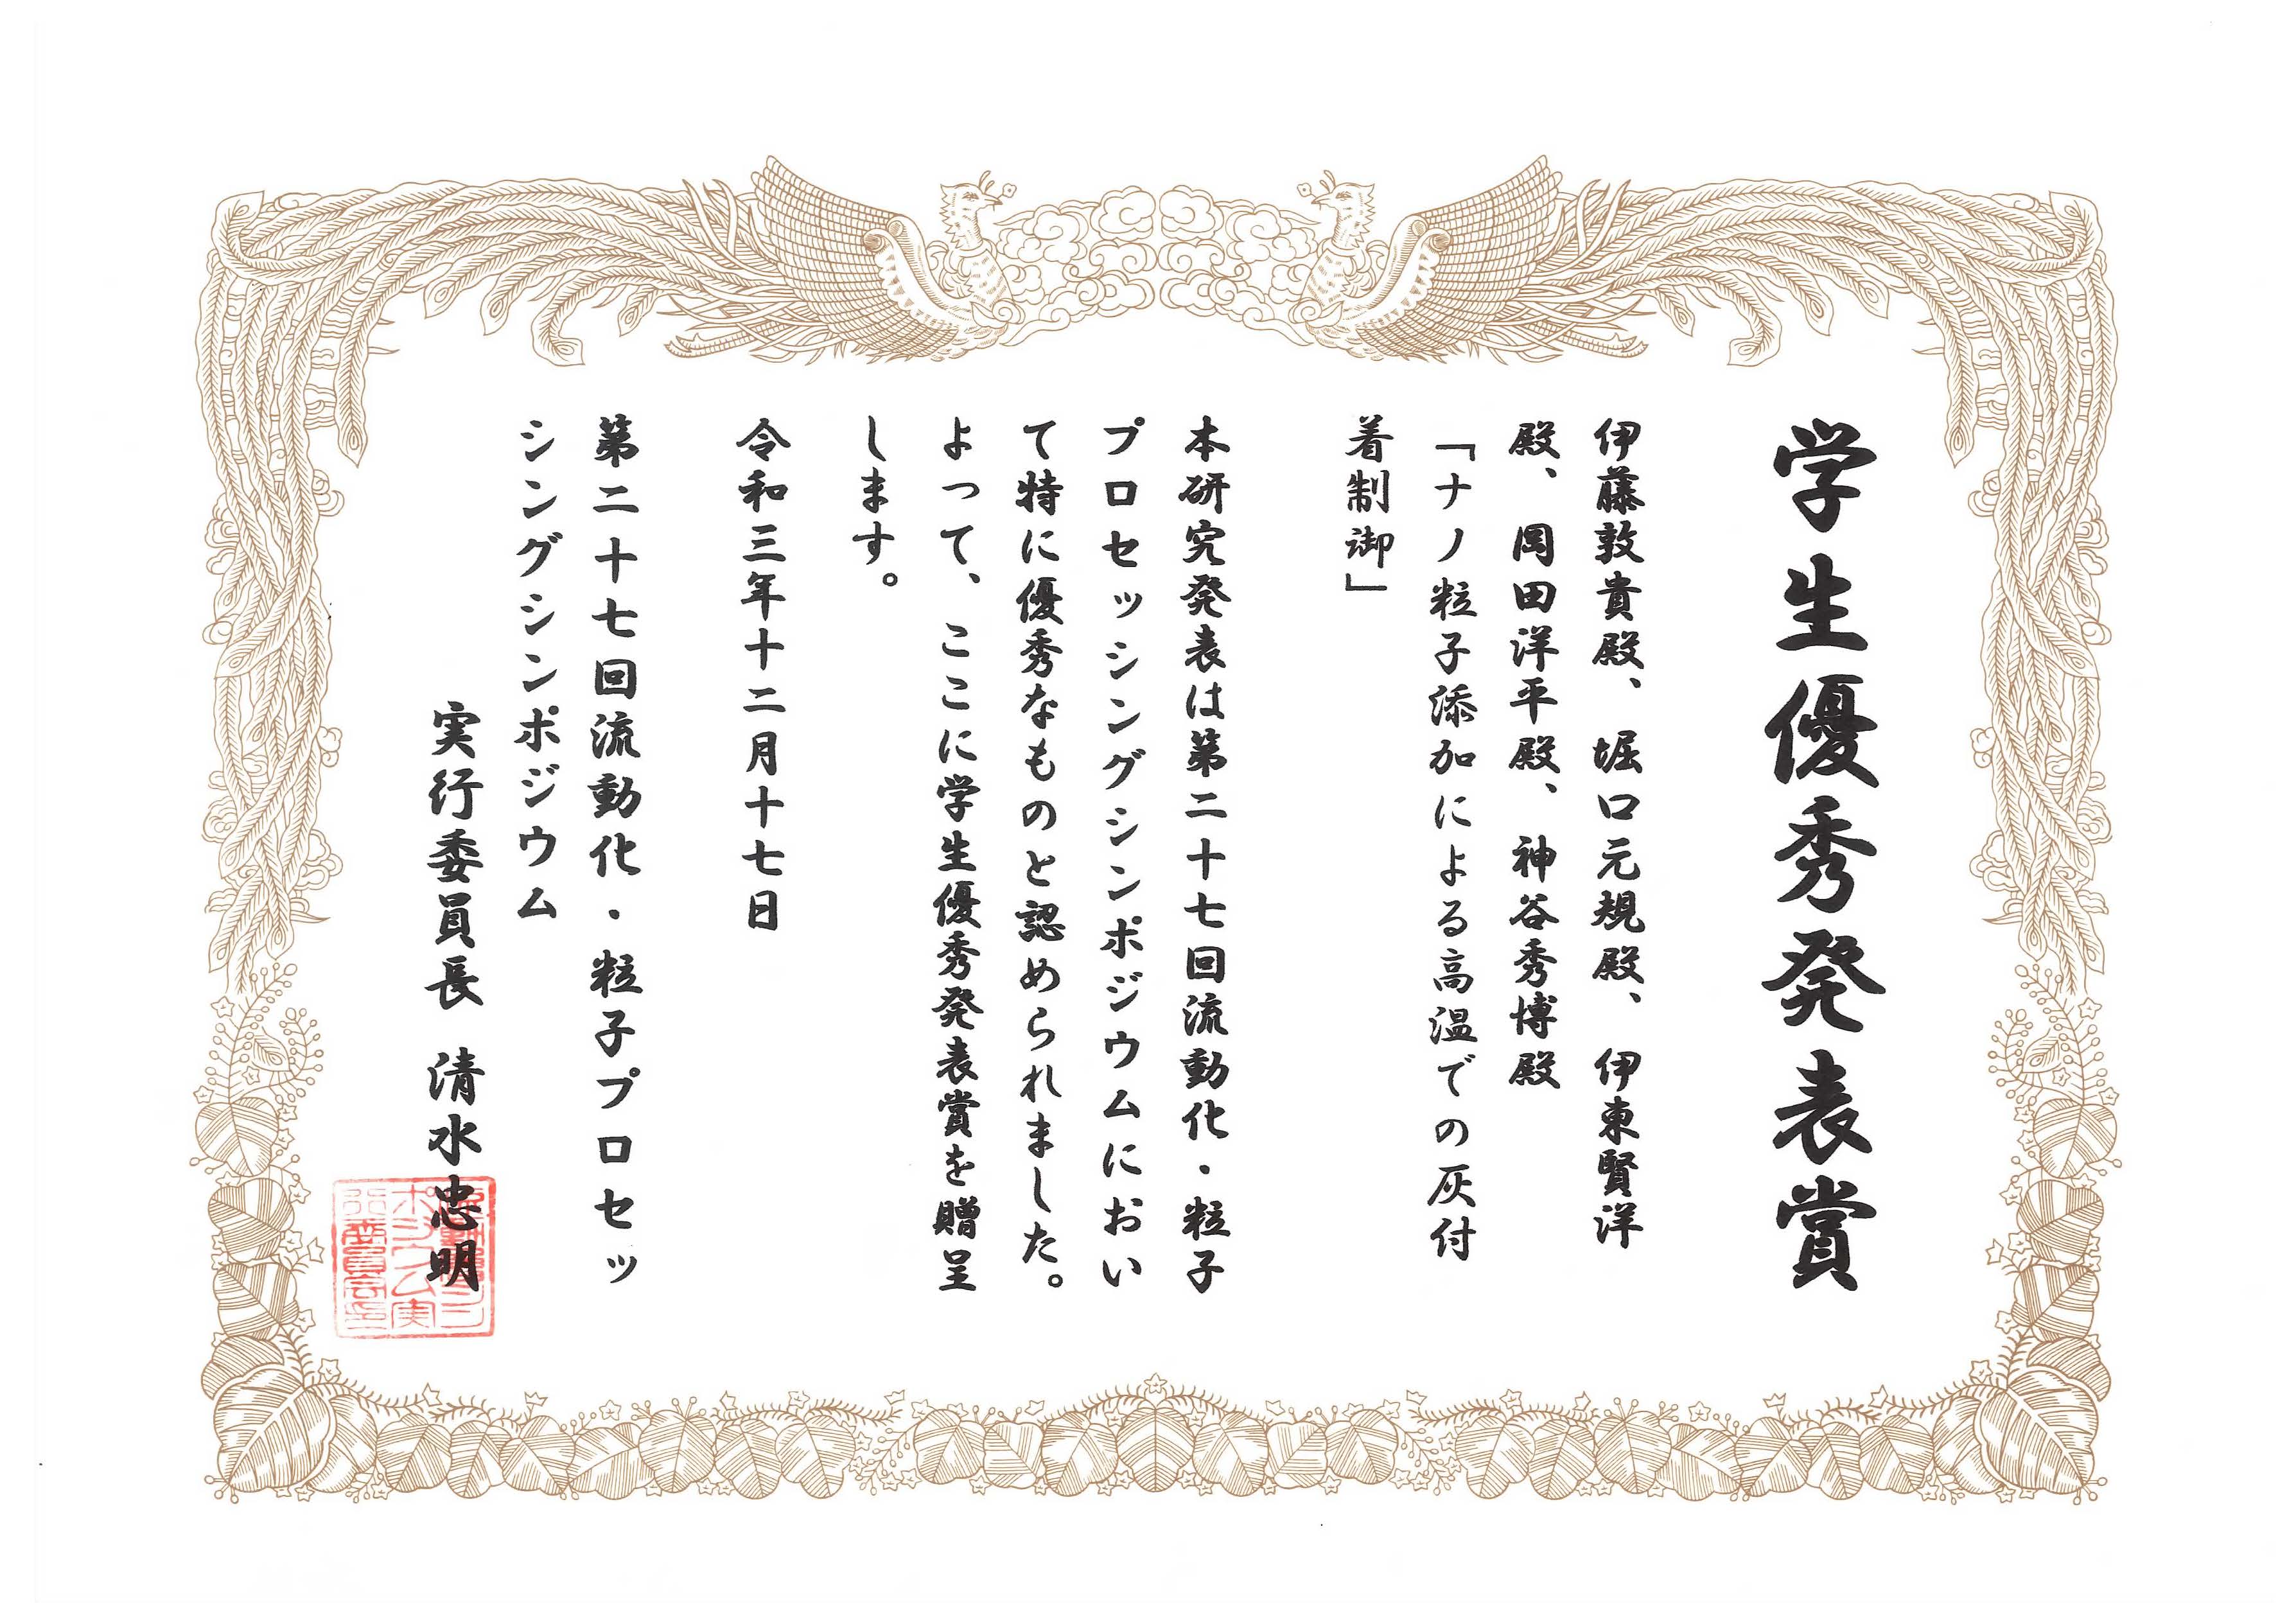 学生優秀発表賞
伊藤敦貴殿、堀口元規殿、伊東賢洋
殿、岡田洋平殿、神谷秀博殿
「ナノ粒子添加による高温での灰付
着制御」
本研究発表は第二十七回流動化・粒子
プロセッシングシンポジウムにおい
て特に優秀なものと認められました。
よって、ここに学生優秀発表賞を贈呈
します。
令和三年十二月十七日
第二十七回流動化・粒子プロセッ
シングシンポジウム
実行委員長 清水忠明